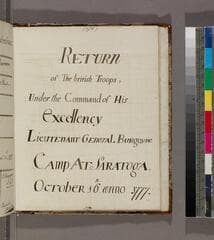 Return
of The british Troops,
Under the Command of His
Excellency
Lieutenant General Burgoyne
Camp At Saratoga
October 16 Anno 1777